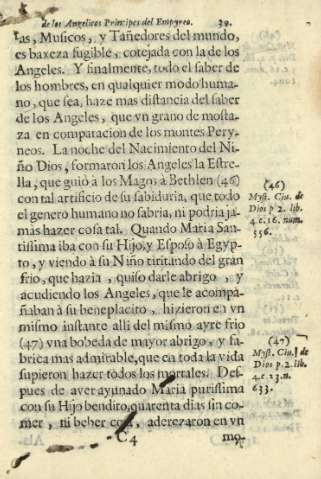 de los Angelicos Principes del Empyreo. 39.
tas, Musicos, y Tañedores del mundo,
es baxeza fugible, cotejada con la de los
Angeles. Y finalmente, todo el saber de
los hombres, en qualquier modo huma-
no, que sea, haze mas distancia del saber
de los Angeles, que vn grano de mosta-
za en comparacion de los montes Pery-
neos. La noche del Nacimiento del Ni-
ño Dios, formaron los Angeles la Estre-
lla, que guiò à los Magos à Bethlen (46)
con tal artificio de su sabiduria, que todo
el genero humano no sabria, ni podria ja-
mas hazer cosa tal. Quando Maria San-
tissima iba con su Hijo, y Esposo à Egyp-
to, y viendo à su Niño tiritando del gran
frio, que hazia, quiso darle abrigo, y
acudiendo los Angeles, que le acompa-
ñaban à su beneplacito, hizieron en vn
mismo instante alli del mismo ayre frio
(47) vna bobeda de mayor abrigo, y fa-
brica mas admirable, que en toda la vida
supieron hazer todos los mortales. Des-
pues de aver ayunado Maria purissima
con su Hijo bendito, quarenta dias sin co-
mer, ni beber cosa, aderezaron en vn
C4 mo-
(46)
Myst. Ciu. de
Dios p 2. lib.
4. c. 16. num.
556.
(47)
Myst. Ciu. de
Dios p. 2. lib.
4. c. 23. n.
633.